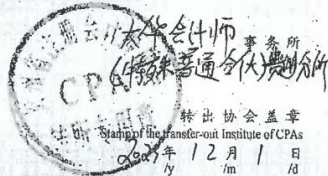 大华会计师
事务所
(特殊普通合伙)
CPA
转出协会盖章
Stamp of the transfer-out Institute of CPAs
2023年 12月 1日
/y /m /d